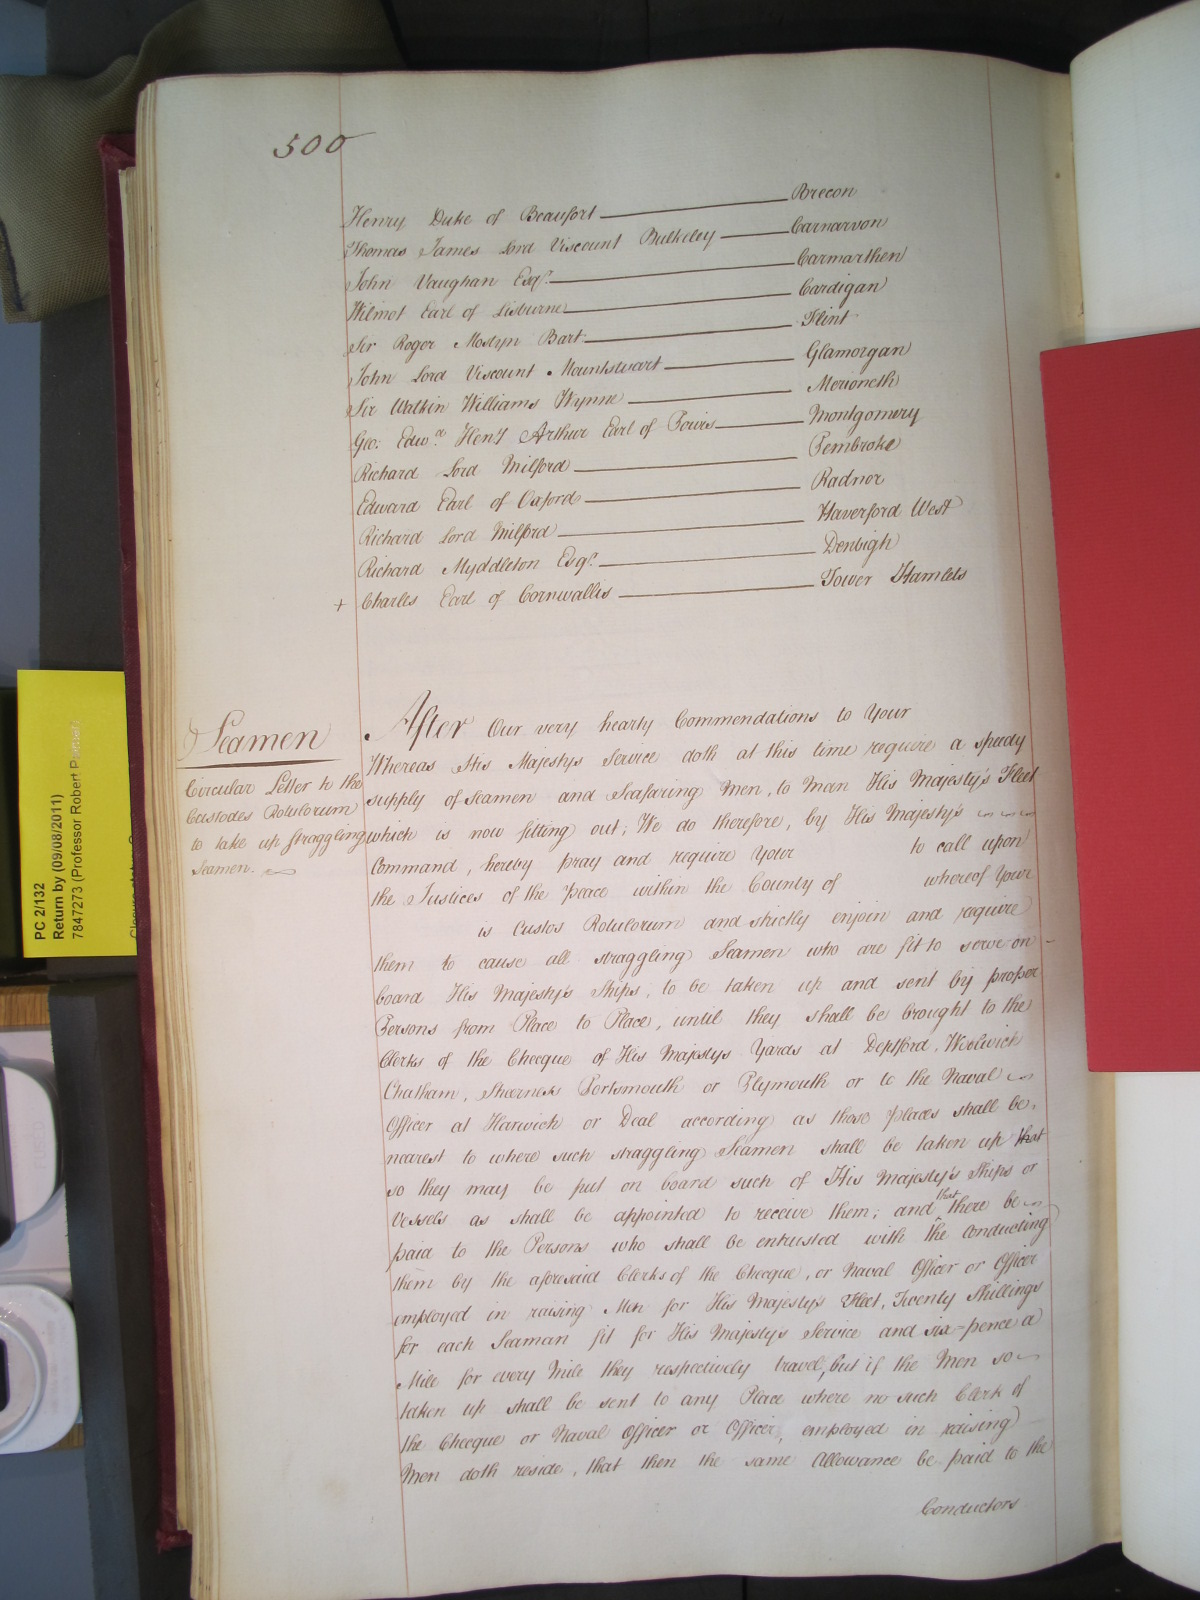 500
Henry Duke of Beaufort — Brecon
Thomas James Lord Viscount Bulkeley — Carnarvon
John Vaughan Esqr. — Carmarthen
Wilmot Earl of Lisburne — Cardigan
Sir Roger Mostyn Bart. — Flint
John Lord Viscount Mountstuart — Glamorgan
Sir Watkin Williams Wynne — Merioneth
Geo: Edwd. Heny Arthur Earl of Powis — Montgomery
Richard Lord Milford — Pembroke
Edward Earl of Oxford — Radnor
Richard Lord Milford — Haverford West
Richard Myddleton Esqr. — Denbigh
+ Charles Earl of Cornwallis — Tower Hamlets
Seamen
Circular Letter to the
Custodes Rotulorum
to take up straggling
Seamen.
After Our very hearty Commendations to Your
Whereas His Majestys Service doth at this time require a speedy
supply of Seamen and Seafaring Men, to Man His Majesty's Fleet
which is now fitting out; We do therefore, by His Majesty's
Command, hereby pray and require Your to call upon
the Justices of the Peace within the County of whereof Your
is Custos Rotulorum and strictly enjoin and require
them to cause all straggling Seamen who are fit to serve on
board His Majesty's Ships, to be taken up and sent by proper
Persons from Place to Place, until they shall be brought to the
Clerks of the Checque of His Majestys Yards at Deptford, Woolwich
Chatham, Sheerness Portsmouth or Plymouth or to the Naval
Officer at Harwich or Deal according as those places shall be
nearest to where such straggling Seamen shall be taken up that
so they may be put on board such of His Majesty's Ships or
Vessels as shall be appointed to receive them; and that there be
paid to the Persons who shall be entrusted with the Conducting
them by the aforesaid Clerks of the Checque, or Naval Officer or Officer
employed in raising Men for His Majesty's Fleet, Twenty Shillings
for each Seaman fit for His Majesty's Service and six=pence a
Mile for every Mile they respectively travel, but if the Men so
taken up shall be sent to any Place where no such Clerk of
the Checque or Naval Officer or Officer, employed in raising
Men doth reside, that then the same Allowance be paid to the
Conductors
PC 2/132
Return by (09/08/2011)
7847273 (Professor Robert